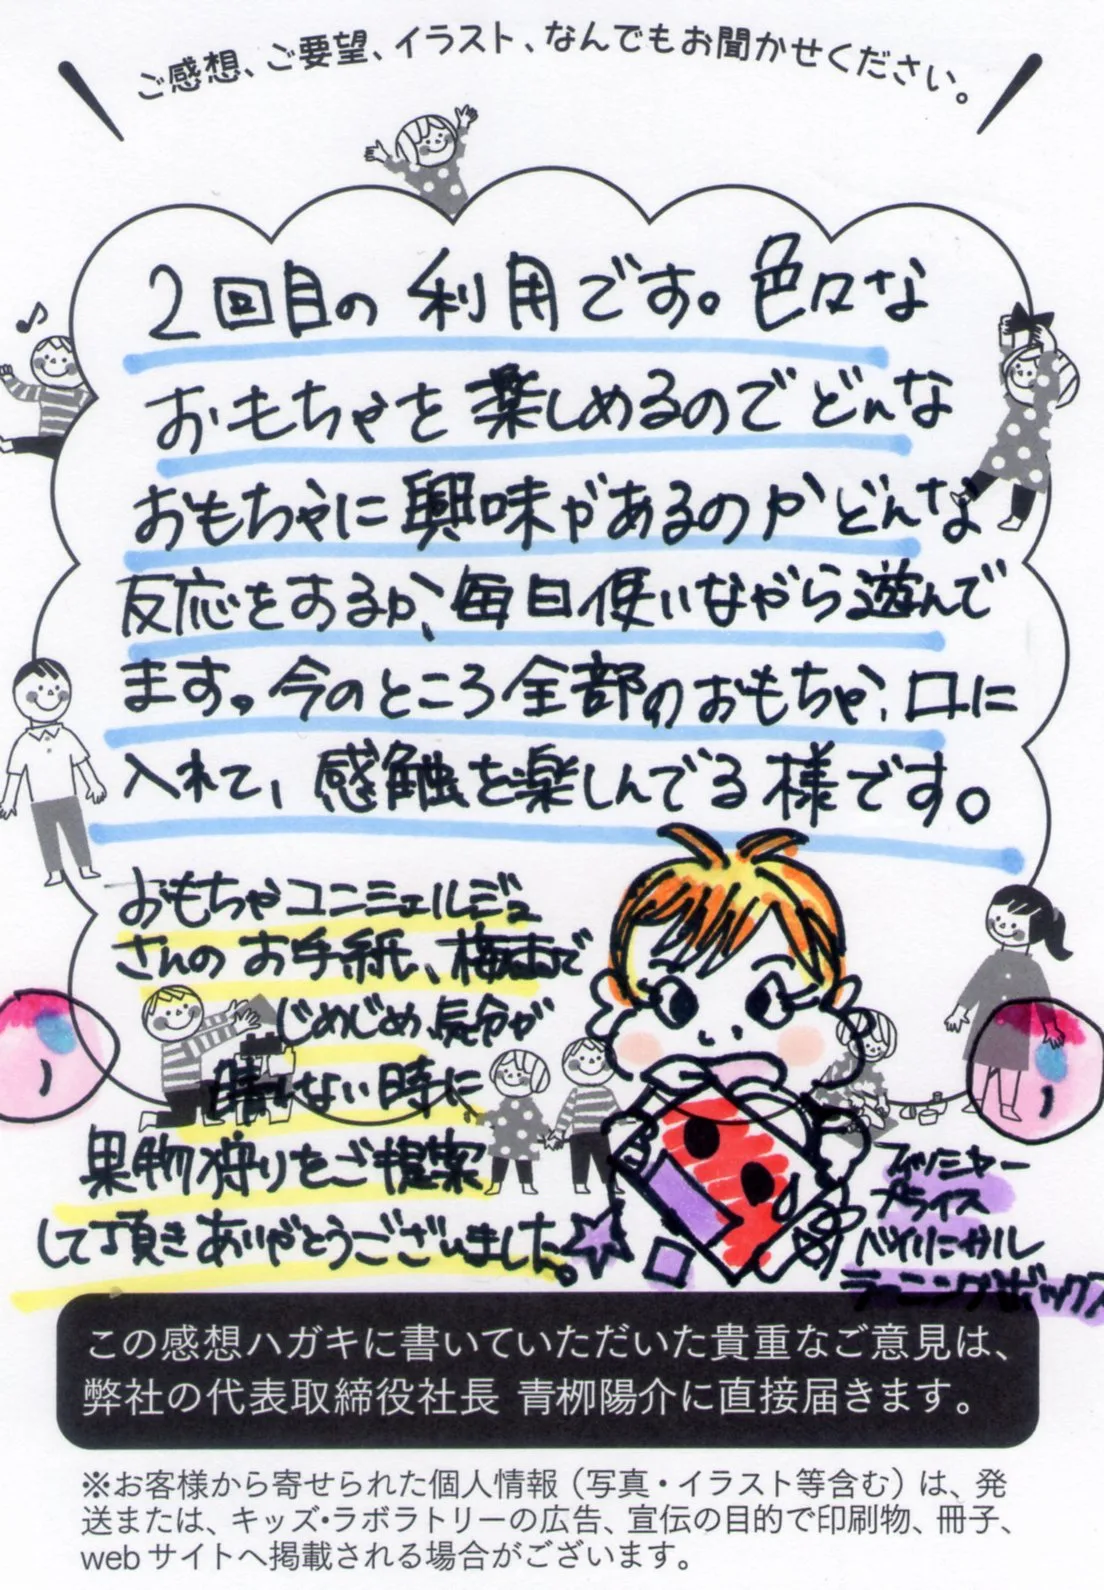 ご感想、ご要望、イラスト、なんでもお聞かせください。
2回目の利用です。色々な
おもちゃを楽しめるのでどんな
おもちゃに興味があるのかどんな
反応をするか、毎日使いながら遊んで
ます。今のところ全部のおもちゃ、口に
入れて、感触を楽しんでる様です。
おもちゃコンシェルジュ
さんのお手紙、梅雨で
じめじめ、気分が
晴れない時に
果物狩りをご提案
して頂きありがとうございました。
フィッシャー
プライス
バイリンガル
ラーニングボックス
この感想ハガキに書いていただいた貴重なご意見は、
弊社の代表取締役社長 青栁陽介に直接届きます。
※お客様から寄せられた個人情報（写真・イラスト等含む）は、発
送または、キッズ・ラボラトリーの広告、宣伝の目的で印刷物、冊子、
webサイトへ掲載される場合がございます。